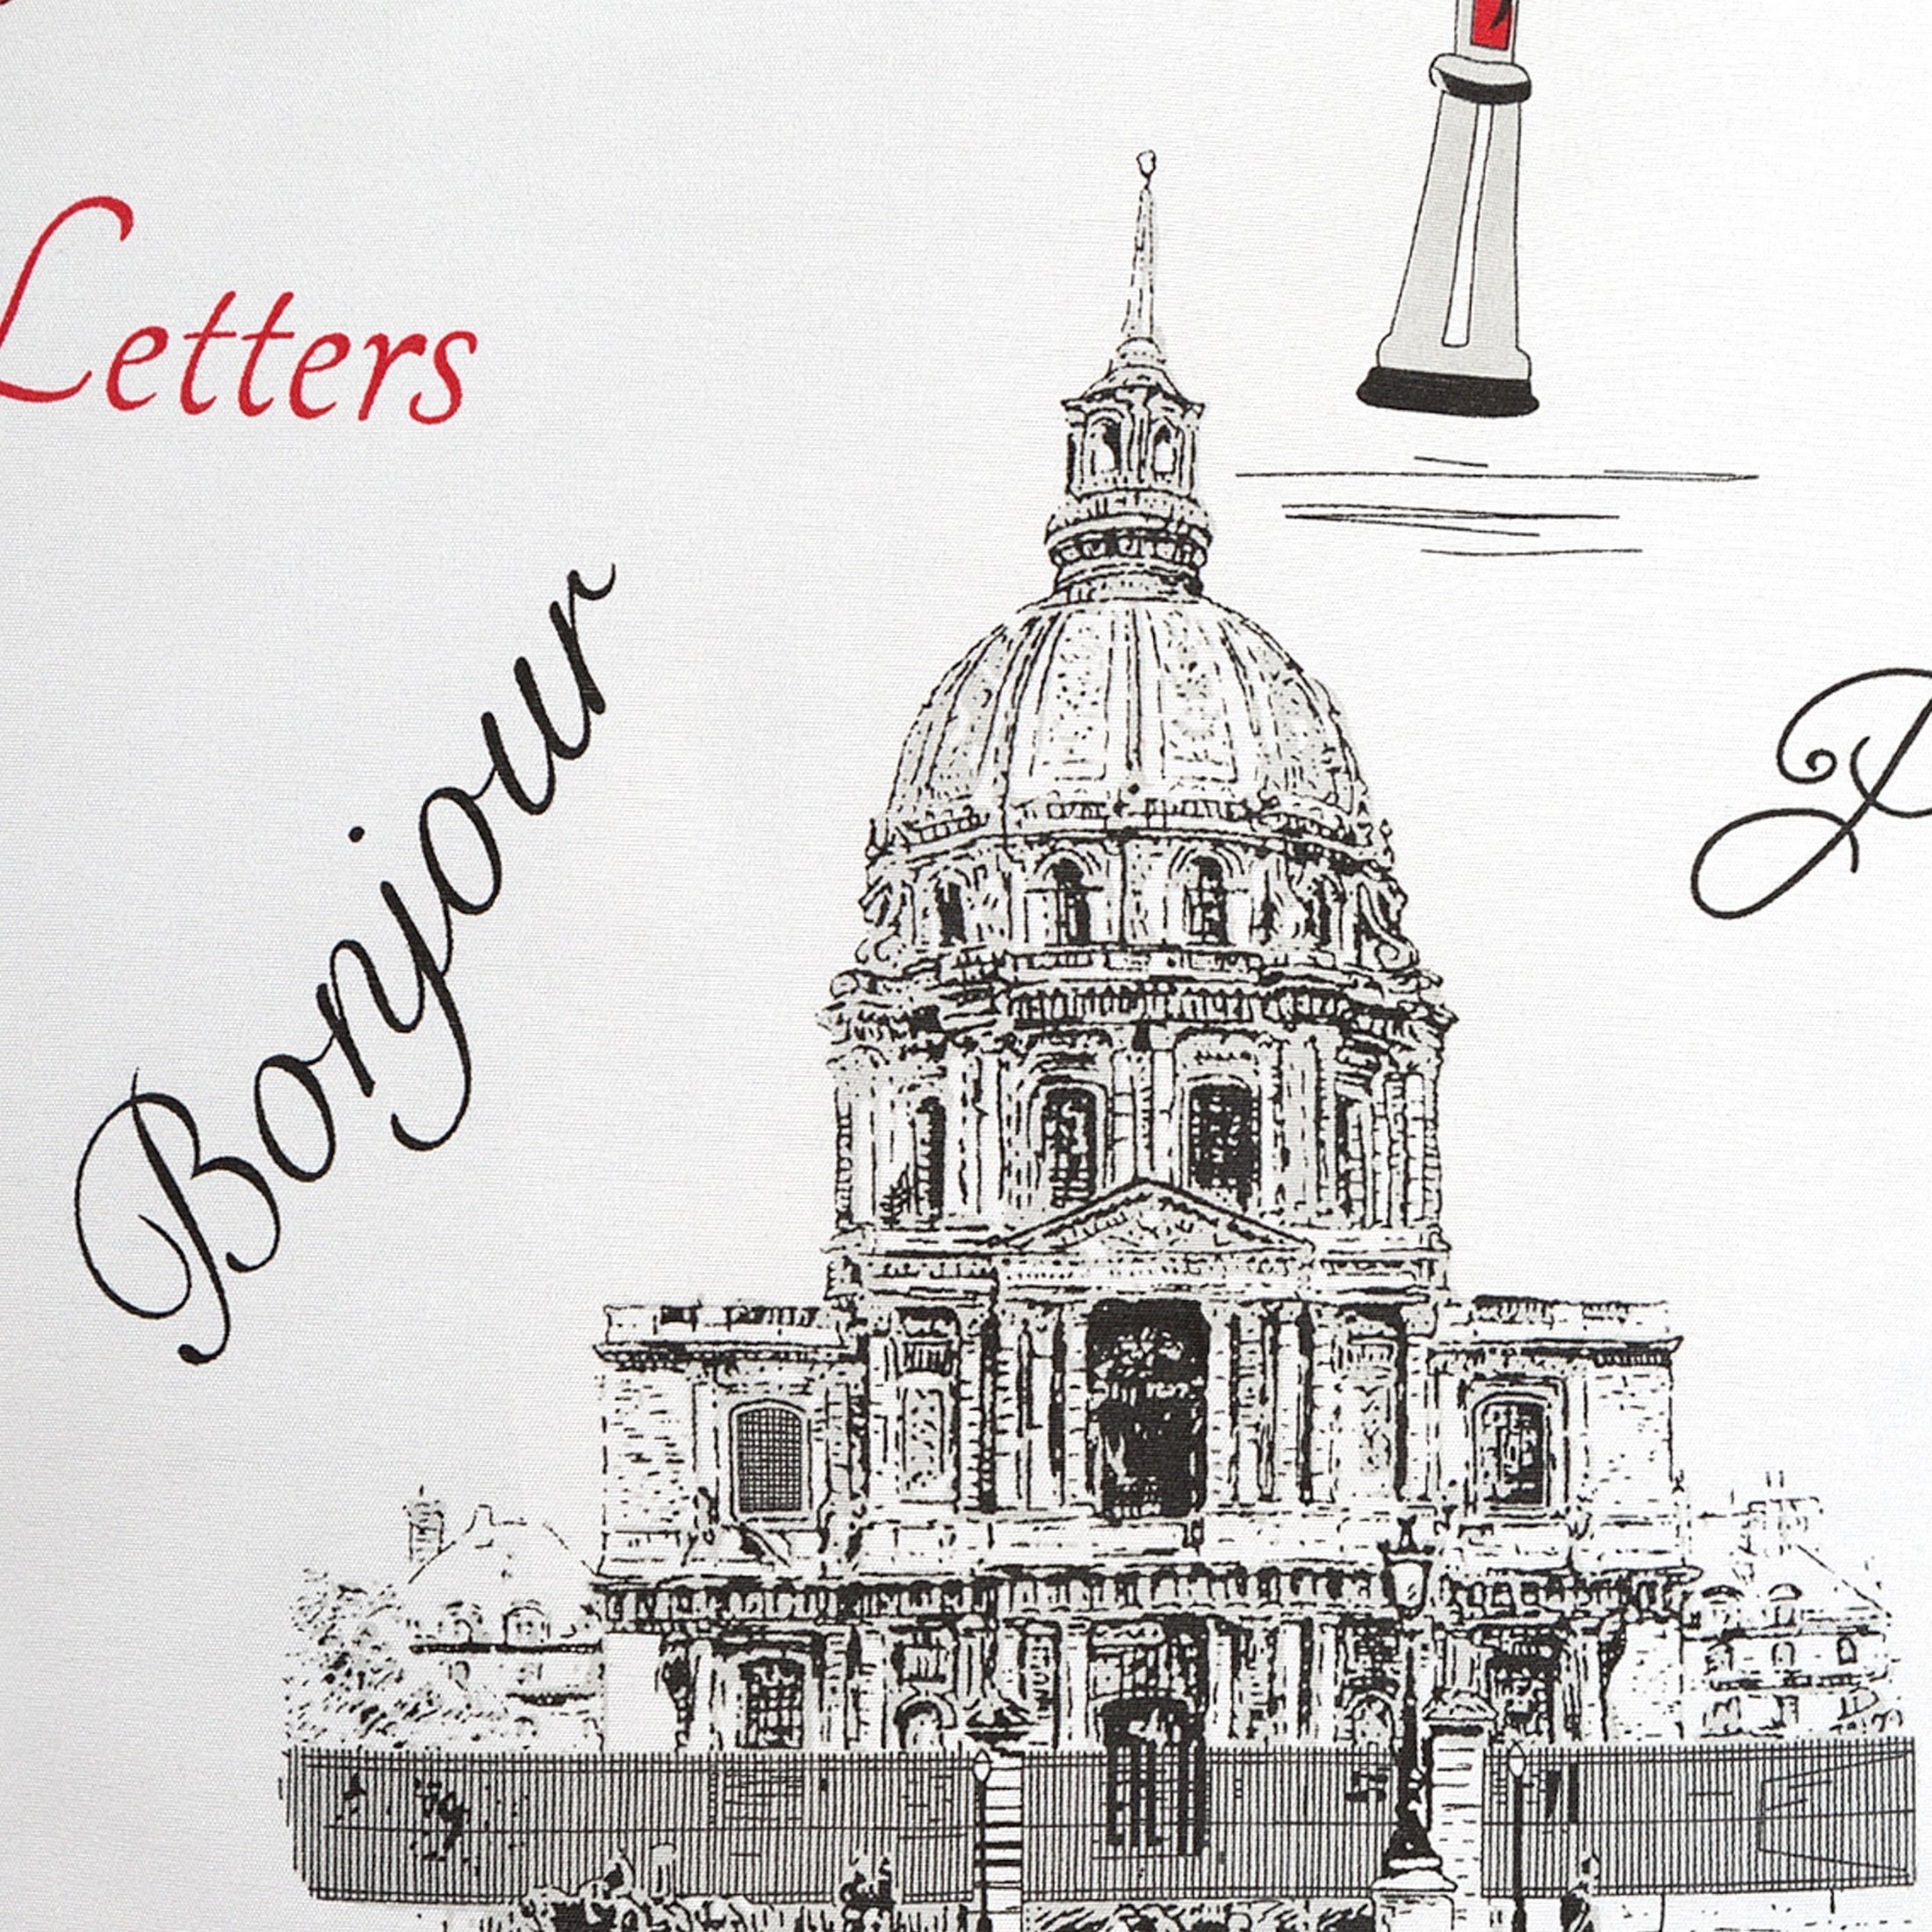 Letters
Bonjour